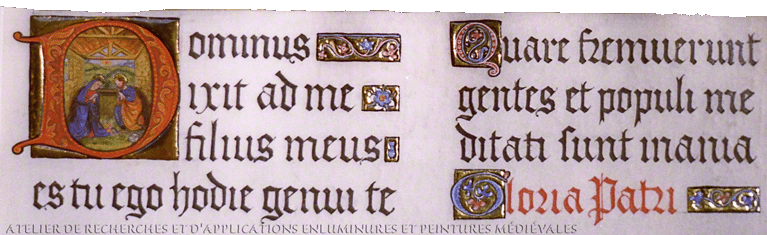 Dominus
Dixit ad me
filius meus
es tu ego hodie genui te
Quare fremuerunt
gentes et populi me
ditati sunt inania
Gloria Patri
ATELIER DE RECHERCHES ET D'APPLICATIONS ENLUMINURES ET PEINTURES MÉDIÉVALES